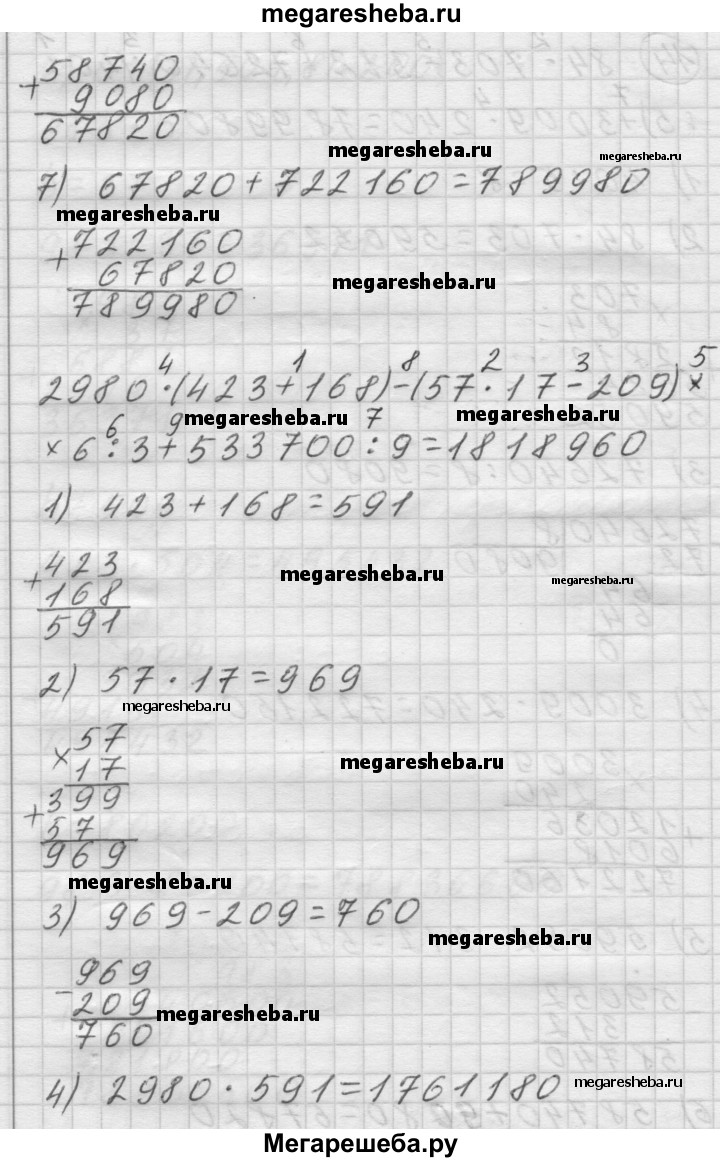 megaresheba.ru
58740
+ 9080
67820
megaresheba.ru megaresheba.ru
7) 67820+722160=789980
megaresheba.ru
722160
+ 67820
789980
megaresheba.ru
4 1 8 2 3 5
2980·(423+168)-(57·17-209)×
megaresheba.ru megaresheba.ru
6 9 7
×6:3+533700:9=1818960
1) 423+168=591
423
+168
591
megaresheba.ru megaresheba.ru
2) 57·17=969
megaresheba.ru
57
×17
399
+57
969
megaresheba.ru
megaresheba.ru
3) 969-209=760
megaresheba.ru
969
-209
760
megaresheba.ru
4) 2980·591=1761180
megaresheba.ru
Мегарешеба.ру